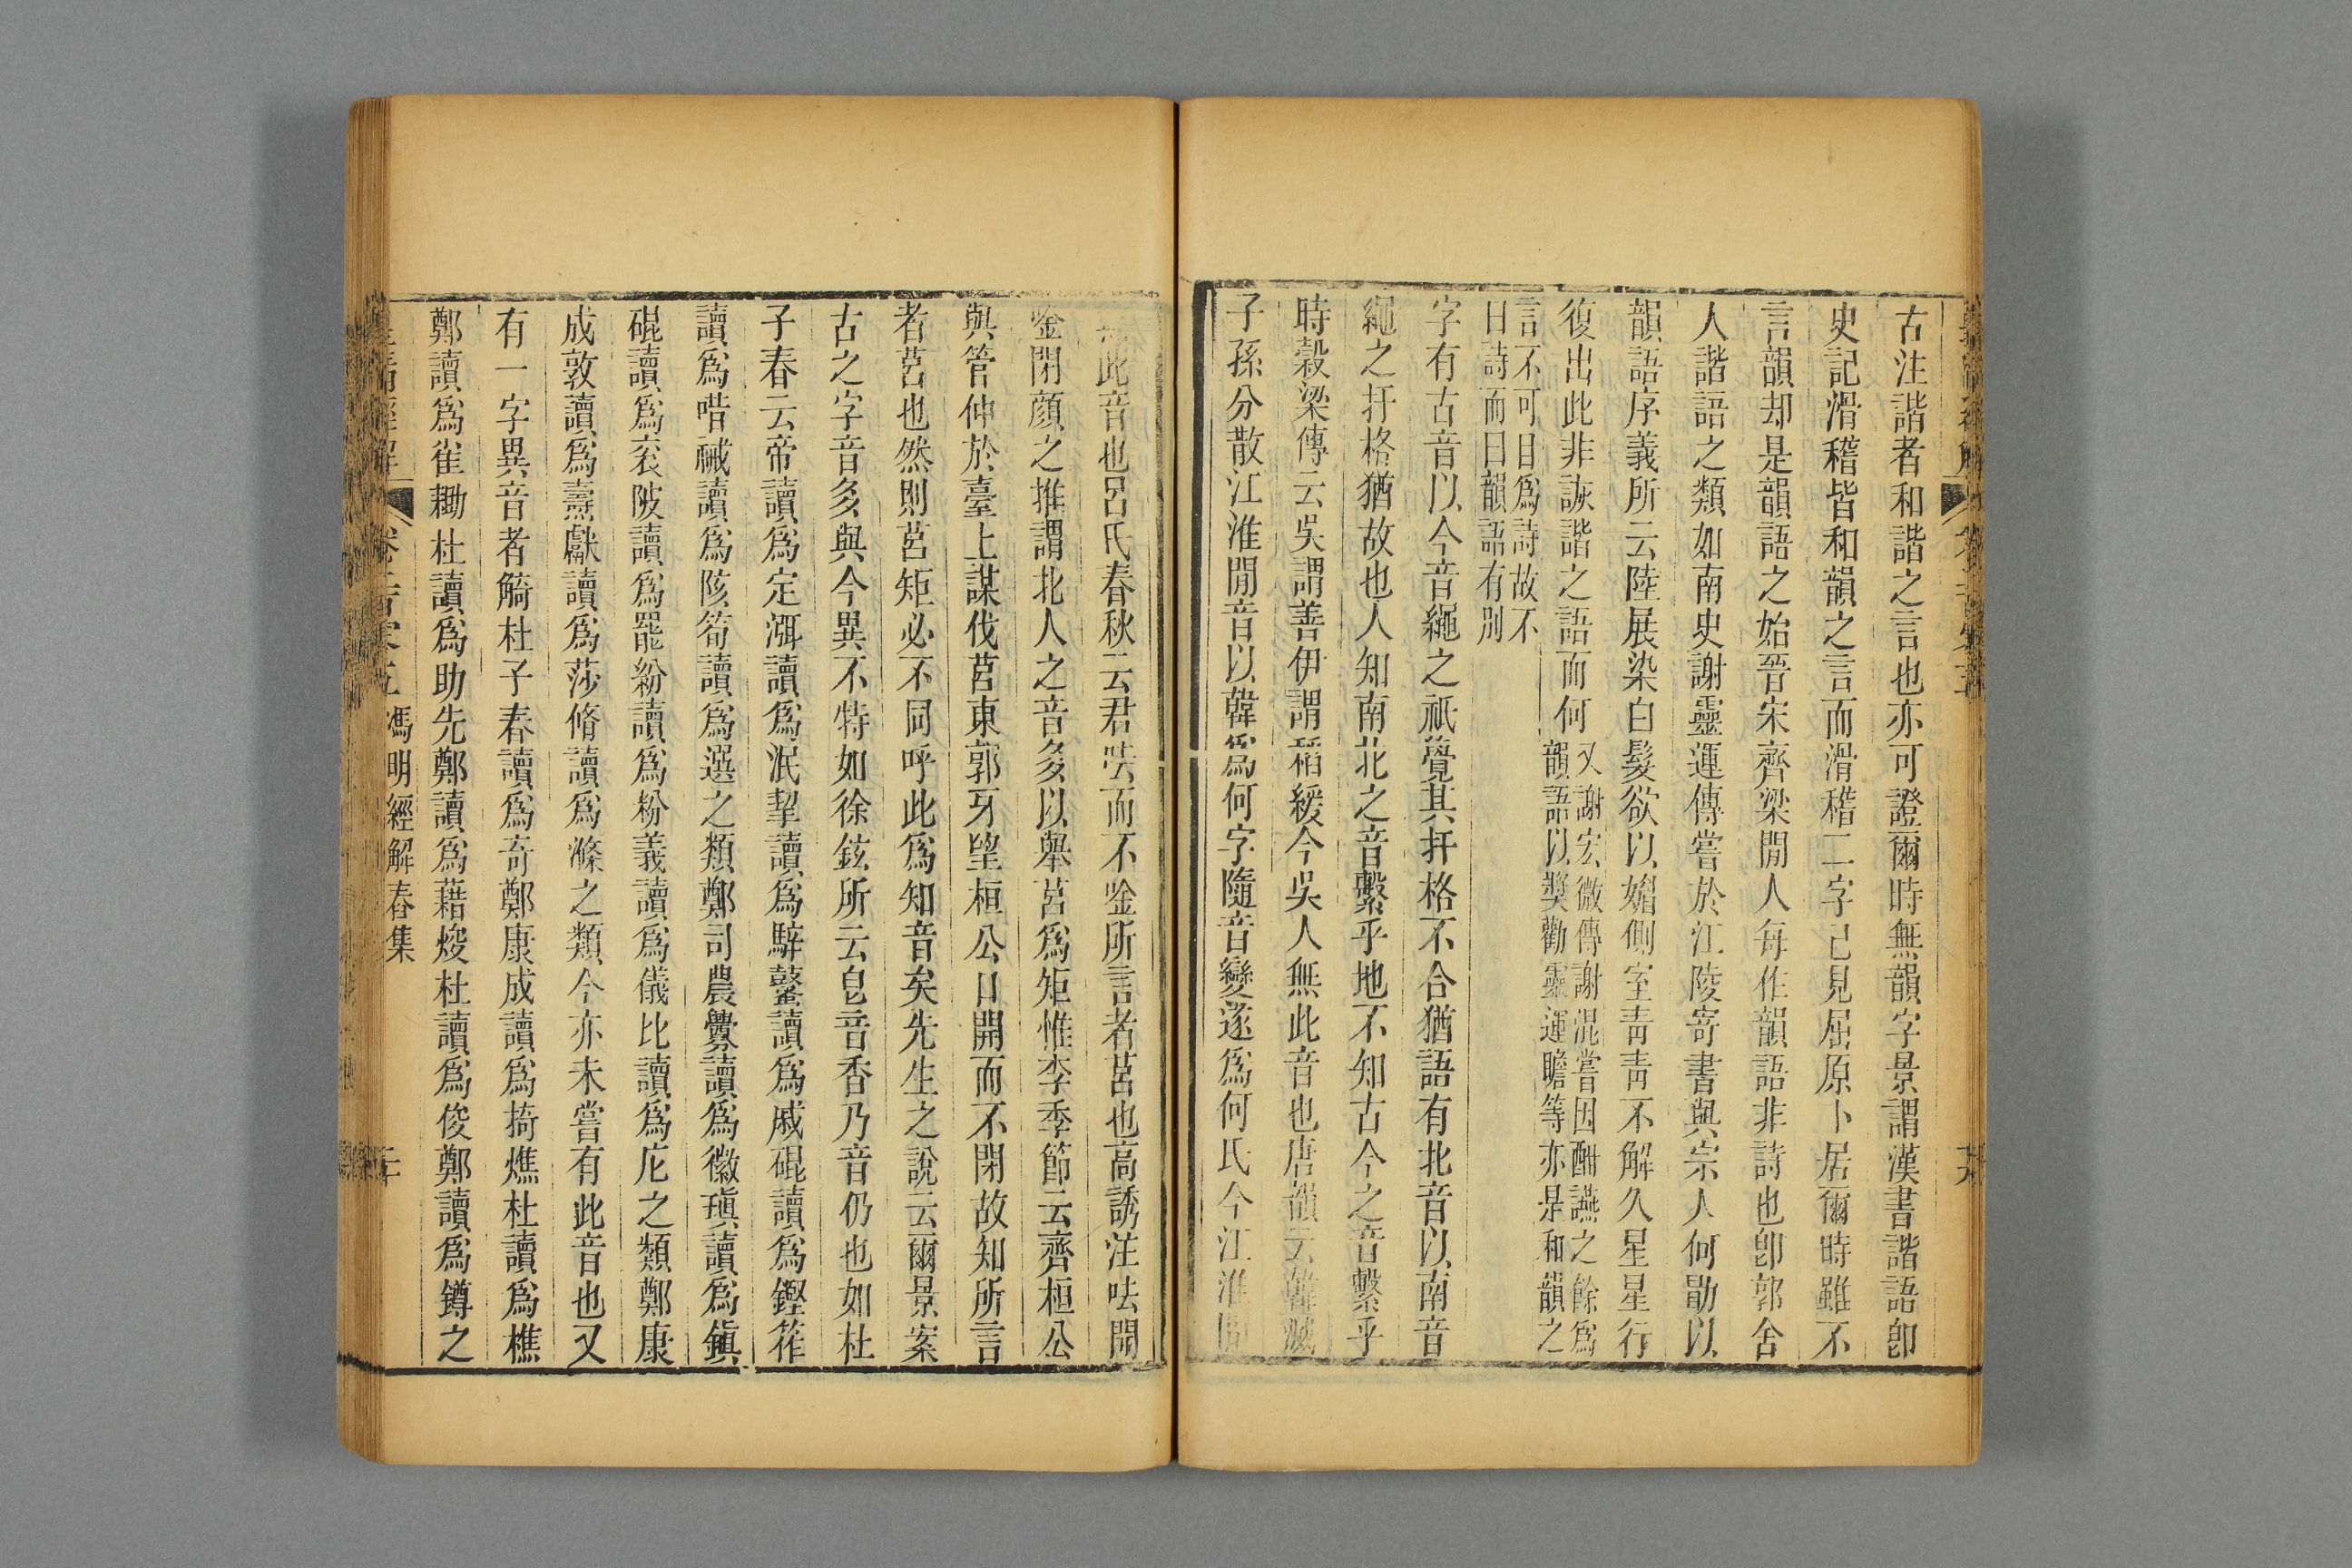 古注諧者和諧之言也亦可證爾時無韻字景謂漢書諧語卽
史記滑稽皆和韻之言而滑稽二字已見屈原卜居爾時雖不
言韻却是韻語之始晉宋齊梁閒人每作韻語非詩也卽郭舍
人諧語之類如南史謝靈運傳嘗於江陵寄書與宗人何勖以
韻語序義所云陸展染白髮欲以媚側室靑靑不解久星星行
復出此非詼諧之語而何
又謝宏微傳謝混嘗因酣讌之餘爲
韻語以奬勸靈運瞻等亦是和韻之
言不可曰爲詩故不
曰詩而曰韻語有別
字有古音以今音繩之祇覺其扞格不合猶語有北音以南音
繩之扞格猶故也人知南北之音繫乎地不知古今之音繫乎
時穀梁傳云吳謂善伊謂稻緩今吳人無此音也唐韻云韓滅
子孫分散江淮閒音以韓爲何字隨音變遂爲何氏今江淮閒
此音也呂氏春秋云君呿而不唫所言者莒也高誘注呿開
唫閉顔之推謂北人之音多以舉莒爲矩惟李季節云齊桓公
與管仲於臺上謀伐莒東郭牙望桓公口開而不閉故知所言
者莒也然則莒矩必不同呼此爲知音矣先生之說云爾景案
古之字音多與今異不特如徐鉉所云皀音香乃音仍也如杜
子春云帝讀爲定湎讀爲泯挈讀爲騂鼜讀爲戚硍讀爲鏗筰
讀爲唶祴讀爲陔筍讀爲選之類鄭司農釁讀爲徽瑱讀爲鎭
硍讀爲衮陂讀爲罷紛讀爲粉義讀爲儀比讀爲庀之類鄭康
成敦讀爲燾獻讀爲莎脩讀爲滌之類今亦未嘗有此音也又
有一字異音者觭杜子春讀爲奇鄭康成讀爲掎燋杜讀爲樵
鄭讀爲雀耡杜讀爲助先鄭讀爲藉焌杜讀爲俊鄭讀爲鐏之
馮明經解舂集